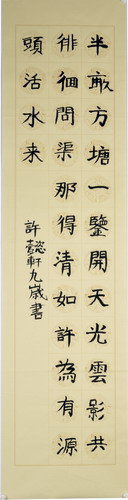 半畝方塘一鑒開天光雲影共
徘徊問渠那得清如許為有源
頭活水来
許懿軒九歲書